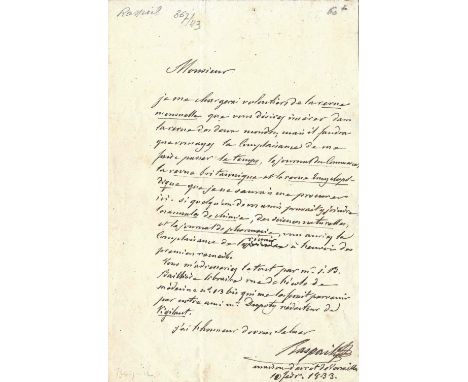 Raspail 867/43
60 f
Monsieur
je me chargerai volontiers de la revue
mensuelle que vous désirez insérer dans
la revue des deux mondes, mais il faudra
que vous ayez la complaisance de me
faire passer le temps, le journal du Commerce,
la revue britannique et la revue Encyclopé-
dique que je ne saurais me procurer
ici. si quelqu'un de vos amis pouvait y joindre
les annales de chimie, des sciences naturelles,
et le journal de pharmacie, vous auriez la
complaisance de les
premiers numéros.
Vous m'adresseriez le tout par mr. J. B.
Baillière libraire rue de l'école de
médecine n° 13 bis qui me les ferait parvenir
par notre ami mr. rédacteur de
Vigilant.
j'ai l'honneur de vous saluer
Raspail
maison d'arrêt de Versailles
10 févr. 1833.